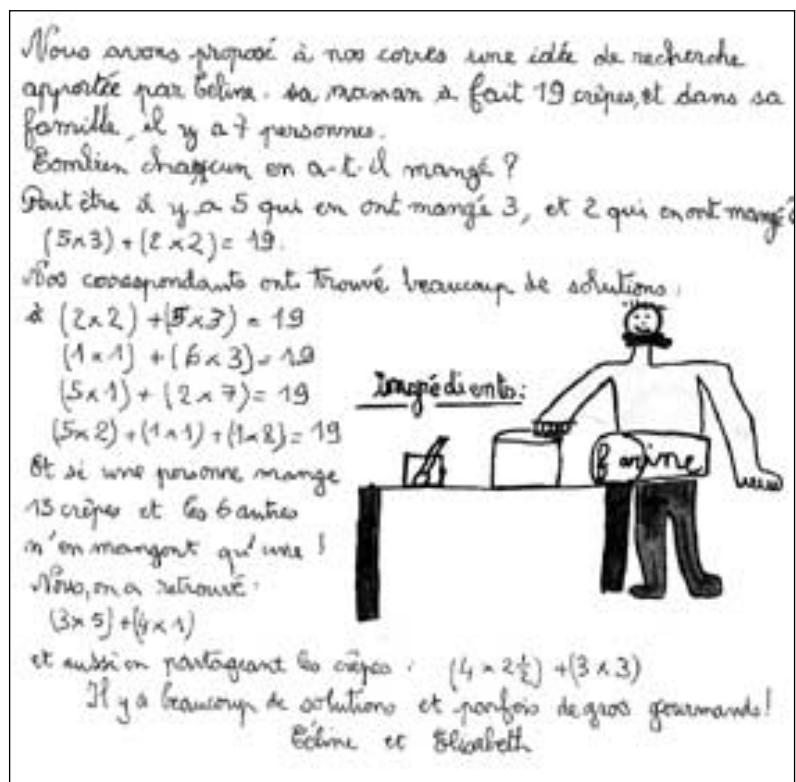 Nous avons proposé à nos corres une idée de recherche
apportée par Céline. sa maman a fait 19 crêpes, et dans sa
famille, il y a 7 personnes.
Combien chacun en a-t-il mangé ?
Peut être il y a 5 qui en ont mangé 3, et 2 qui en ont mangé 2
(5×3) + (2×2) = 19.
Nos correspondants ont trouvé beaucoup de solutions :
(2×2) + (5×3) = 19
(1×1) + (6×3) = 19
(5×1) + (2×7) = 19
(5×2) + (1×1) + (1×8) = 19
Et si une personne mange
13 crêpes et les 6 autres
n'en mangent qu'une !
Nous, on a retrouvé :
(3×5) + (4×1)
et aussi en partageant les crêpes : (4×2½) + (3×3)
Il y a beaucoup de solutions et parfois de gros gourmands !
Céline et Elisabeth
Ingrédients :
farine